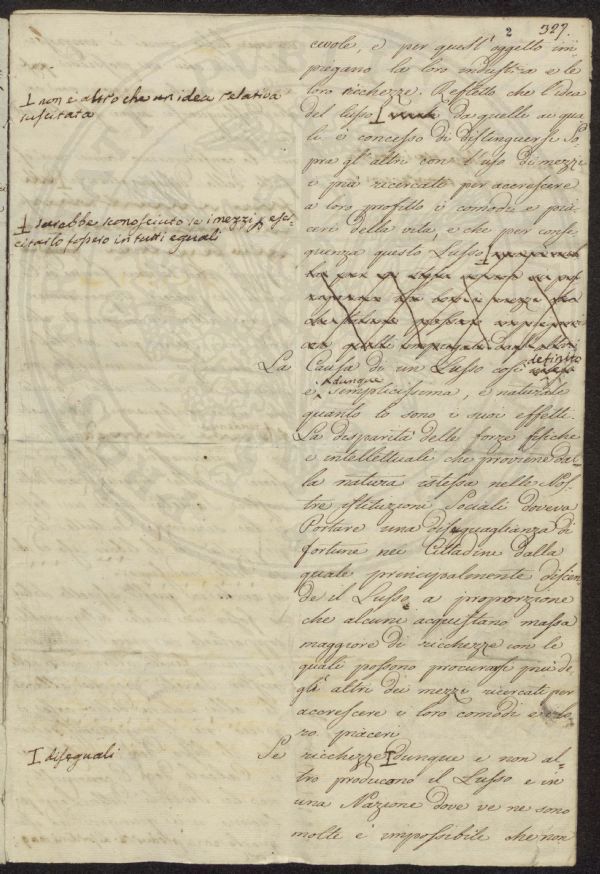 2 327.
cevole, e per quest' oggetto im
piegano la loro industria e le
loro richezze. Rifletto che l'idea
⊥ non è altro che un'idea relativa
suscitata
del lusso ⊥ da quelle ai qua
li è concesso di distinguersi So
pra gl' altri con l'uso di mezzi
e più ricercati per accrescere
a loro profitto i comodi e pia
⊥ sarebbe sconosciuto se i mezzi p eser
citarlo fossero in tutti eguali
ceri della vita, e che per conse
guenza questo Lusso ⊥
La Causa di un Lusso così definito
è dunque Semplicissima, e naturale
quanto lo sono i suoi effetti.
La disparità delle forze fisiche
e intellettuale che proviene dal
la natura istessa nelle Nos
tre istituzioni Sociali doveva
Portare una disuguaglianza di
fortune nei Cittadini dalla
quale principalmente discen
de il Lusso, a proporzione
che alcuni acquistano massa
maggiore di ricchezze con le
quali possono procurarsi più de
gl' altri dei mezzi ricercati per
accrescere i loro comodi e i lo
ro piaceri
I diseguali
Se ricchezze I dunque e non al
tro producono il Lusso e in
una Nazione dove ve ne sono
molte è impossibile che non